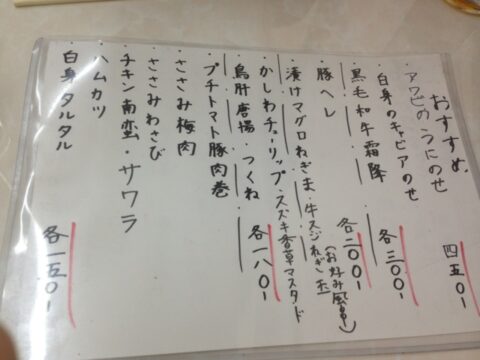 おすすめ
・アワビのうにのせ 四五〇-
・白身のキャビアのせ
・黒毛和牛霜降 各三〇〇-
・豚ヘレ
・漬けマグロねぎま・牛スジねぎ玉(お好み風串) 各二〇〇-
・かしわチューリップ・スズキ香草マスタード
・鳥肝唐揚・つくね 各一八〇-
・プチトマト豚肉巻
・ささみ梅肉
・ささみわさび
・チキン南蛮・サワラ
・ハムカツ
・白身タルタル 各一五〇-